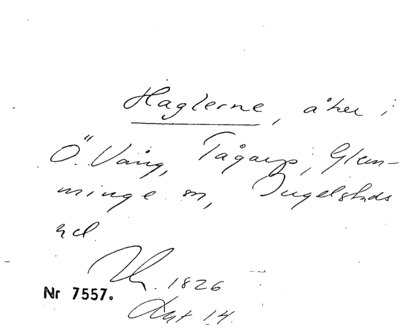 Haglerne, åker i
Ö. Vång, Tågarp, Glem-
minge sn, Ingelstads
hd.
1826
Nr 7557.
Akt 14